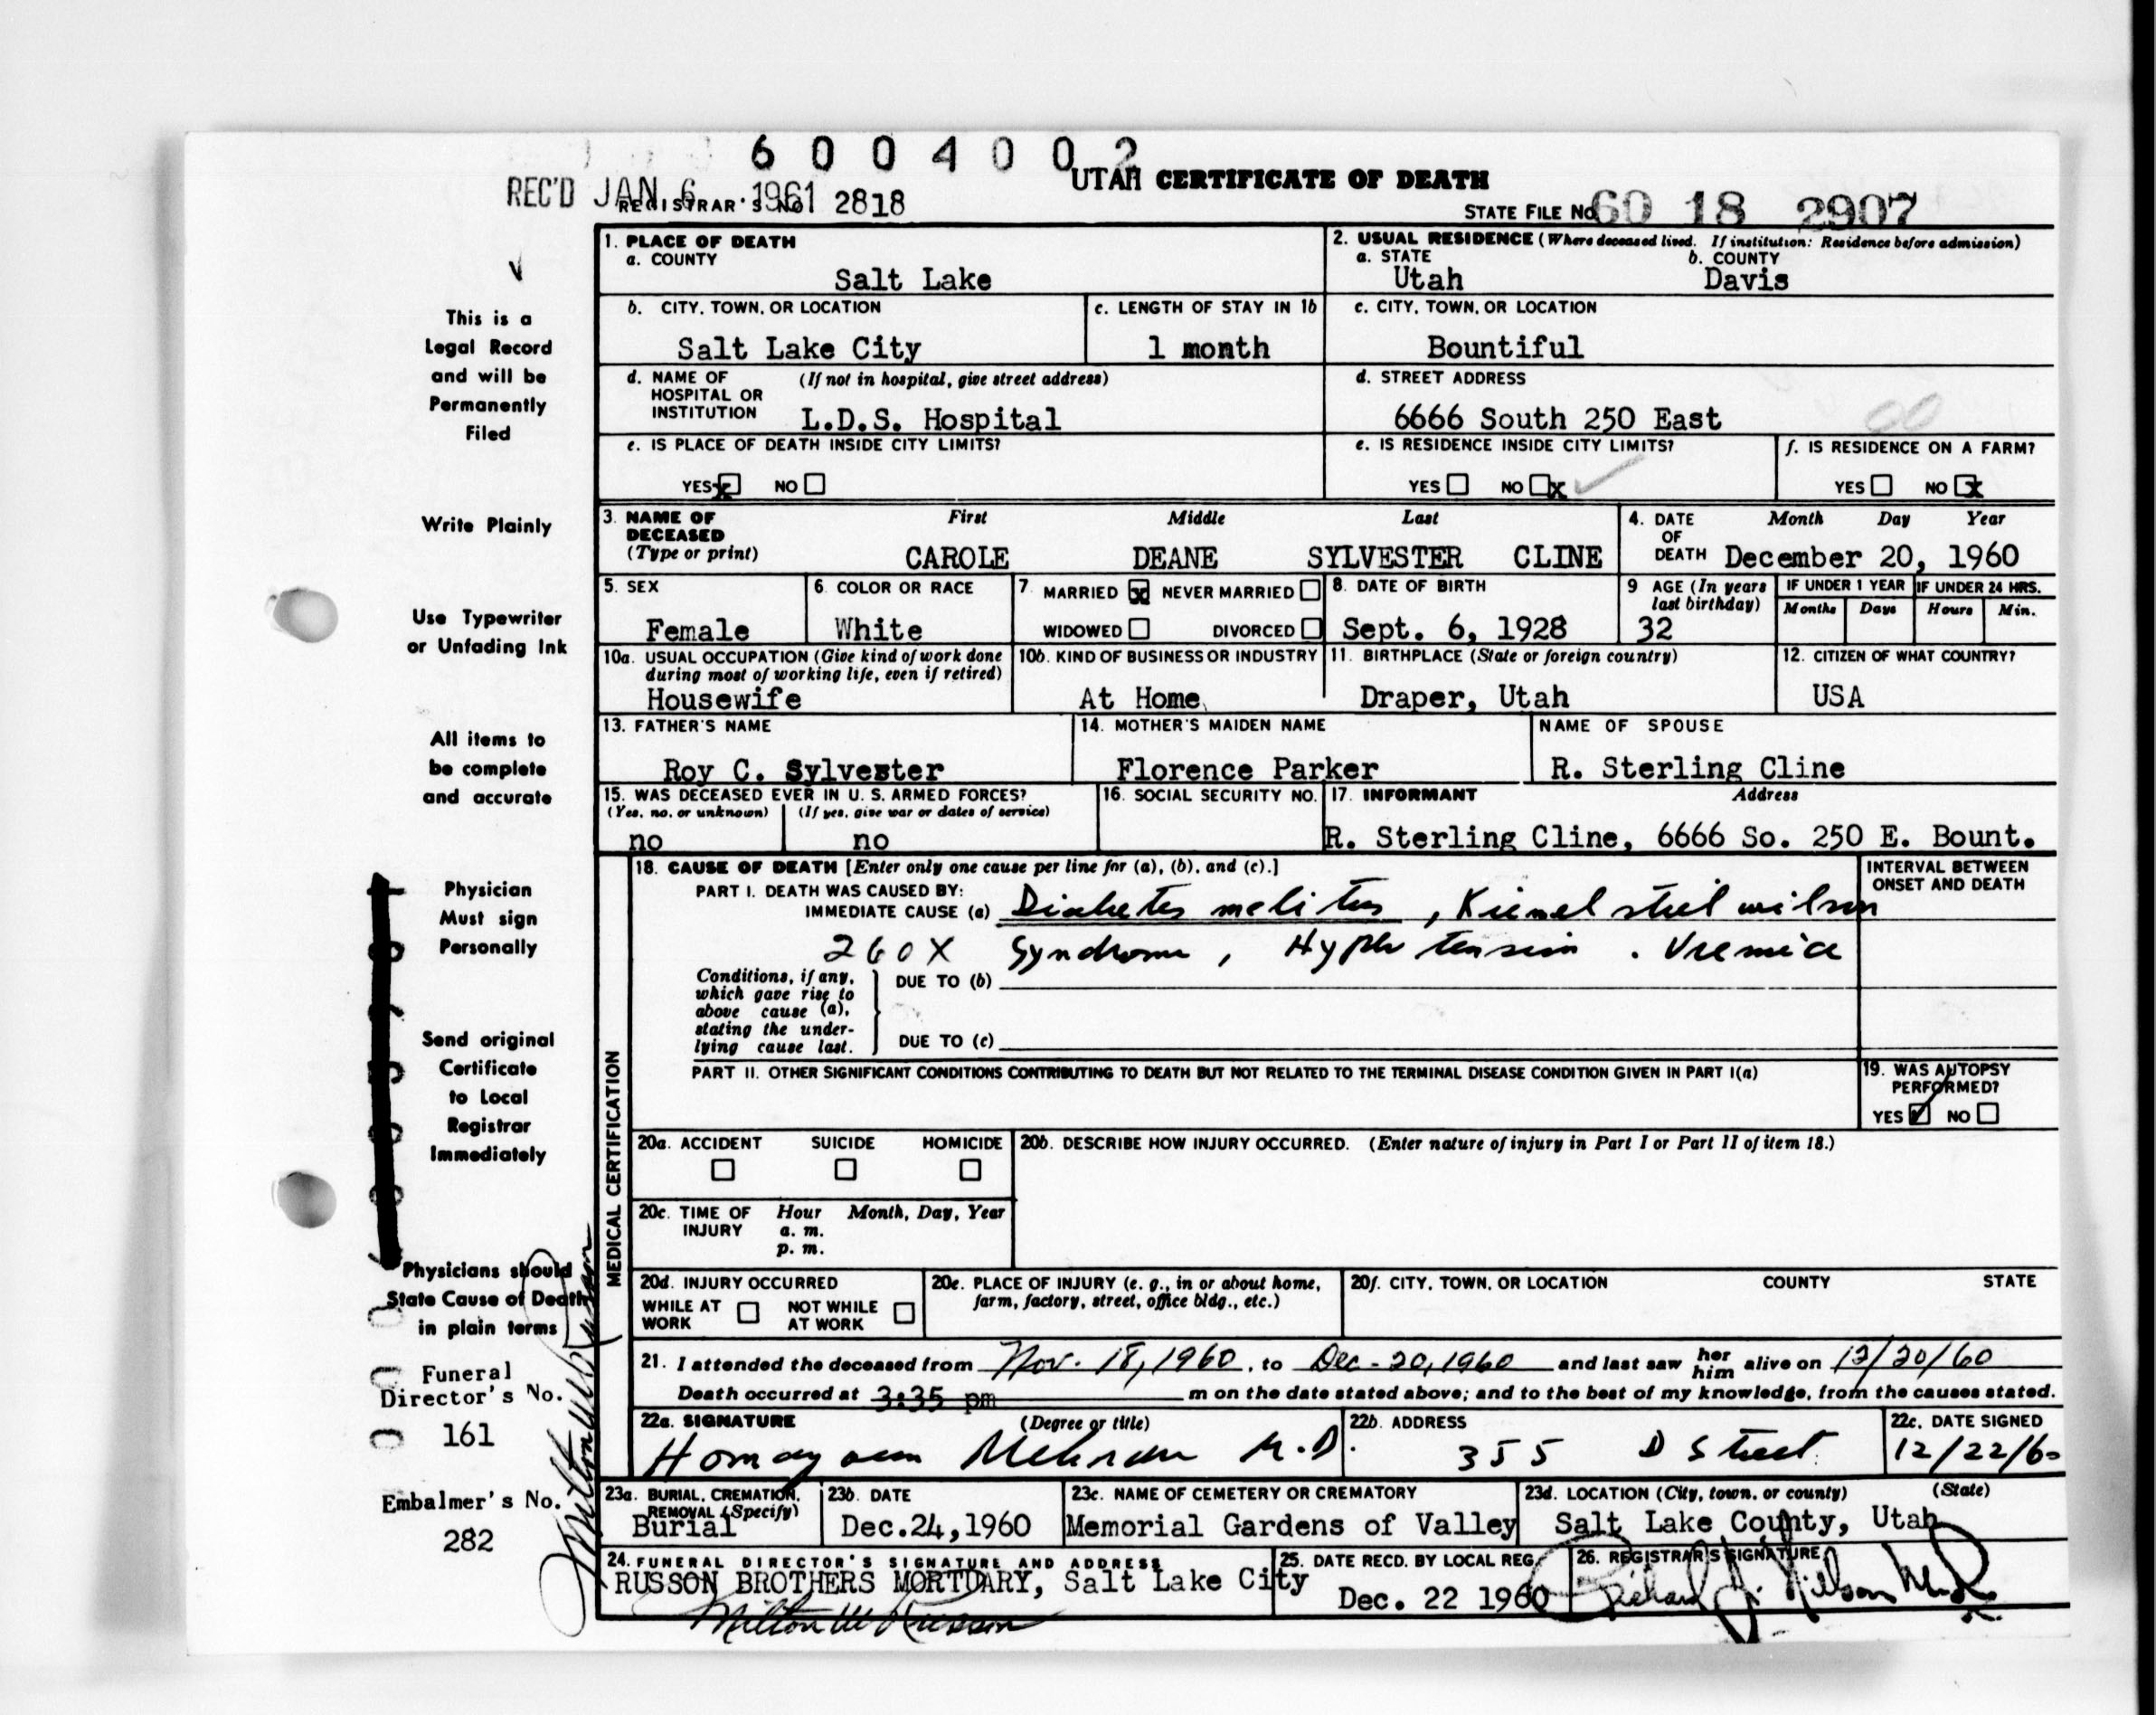 6004002
REC'D JAN 6 1961
REGISTRAR'S NO 2818
UTAH CERTIFICATE OF DEATH
STATE FILE No. 60 18 2907
This is a
Legal Record
and will be
Permanently
Filed
Write Plainly
Use Typewriter
or Unfading Ink
All items to
be complete
and accurate
Physician
Must sign
Personally
Send original
Certificate
to Local
Registrar
Immediately
Physicians should
State Cause of Death
in plain terms
Funeral
Director's No.
161
Embalmer's No.
282
Milton W Russon
1. PLACE OF DEATH
a. COUNTY
Salt Lake
2. USUAL RESIDENCE (Where deceased lived. If institution: Residence before admission)
a. STATE b. COUNTY
Utah Davis
b. CITY, TOWN, OR LOCATION
Salt Lake City
c. LENGTH OF STAY IN 1b
1 month
c. CITY, TOWN, OR LOCATION
Bountiful
d. NAME OF (If not in hospital, give street address)
HOSPITAL OR
INSTITUTION L.D.S. Hospital
d. STREET ADDRESS
6666 South 250 East
00
e. IS PLACE OF DEATH INSIDE CITY LIMITS?
YES x NO
e. IS RESIDENCE INSIDE CITY LIMITS?
YES NO x
f. IS RESIDENCE ON A FARM?
YES NO x
3. NAME OF First Middle Last
DECEASED
(Type or print) CAROLE DEANE SYLVESTER CLINE
4. DATE Month Day Year
OF
DEATH December 20, 1960
5. SEX
Female
6. COLOR OR RACE
White
7. MARRIED x NEVER MARRIED
WIDOWED DIVORCED
8. DATE OF BIRTH
Sept. 6, 1928
9 AGE (In years
last birthday)
32
IF UNDER 1 YEAR IF UNDER 24 HRS.
Months Days Hours Min.
10a. USUAL OCCUPATION (Give kind of work done
during most of working life, even if retired)
Housewife
10b. KIND OF BUSINESS OR INDUSTRY
At Home
11. BIRTHPLACE (State or foreign country)
Draper, Utah
12. CITIZEN OF WHAT COUNTRY?
USA
13. FATHER'S NAME
Roy C. Sylvester
14. MOTHER'S MAIDEN NAME
Florence Parker
NAME OF SPOUSE
R. Sterling Cline
15. WAS DECEASED EVER IN U. S. ARMED FORCES?
(Yes, no, or unknown) (If yes, give war or dates of service)
no no
16. SOCIAL SECURITY NO.
17. INFORMANT Address
R. Sterling Cline, 6666 So. 250 E. Bount.
MEDICAL CERTIFICATION
18. CAUSE OF DEATH [Enter only one cause per line for (a), (b), and (c).]
INTERVAL BETWEEN
ONSET AND DEATH
PART I. DEATH WAS CAUSED BY:
IMMEDIATE CAUSE (a) Diabetes melitus, Kiemel stiel wilson
260X Syndrome, Hypertension. Uremia
Conditions, if any,
which gave rise to
above cause (a),
stating the under-
lying cause last.
DUE TO (b)
DUE TO (c)
PART II. OTHER SIGNIFICANT CONDITIONS CONTRIBUTING TO DEATH BUT NOT RELATED TO THE TERMINAL DISEASE CONDITION GIVEN IN PART I(a)
19. WAS AUTOPSY
PERFORMED?
YES ✓ NO
20a. ACCIDENT SUICIDE HOMICIDE
20b. DESCRIBE HOW INJURY OCCURRED. (Enter nature of injury in Part I or Part II of item 18.)
20c. TIME OF Hour Month, Day, Year
INJURY a. m.
p. m.
20d. INJURY OCCURRED
WHILE AT NOT WHILE
WORK AT WORK
20e. PLACE OF INJURY (e. g., in or about home,
farm, factory, street, office bldg., etc.)
20f. CITY, TOWN, OR LOCATION COUNTY STATE
21. I attended the deceased from Nov. 18, 1960, to Dec-20, 1960 and last saw her him alive on 12/20/60
Death occurred at 3:35 pm m on the date stated above; and to the best of my knowledge, from the causes stated.
22a. SIGNATURE (Degree or title)
Homayoun M.D.
22b. ADDRESS
355 D Street
22c. DATE SIGNED
12/22/60
23a. BURIAL, CREMATION,
REMOVAL (Specify)
Burial
23b. DATE
Dec.24,1960
23c. NAME OF CEMETERY OR CREMATORY
Memorial Gardens of Valley
23d. LOCATION (City, town, or county) (State)
Salt Lake County, Utah
24. FUNERAL DIRECTOR'S SIGNATURE AND ADDRESS
RUSSON BROTHERS MORTUARY, Salt Lake City
Milton W Russon
25. DATE RECD. BY LOCAL REG.
Dec. 22 1960
26. REGISTRAR'S SIGNATURE
Richard J. Nilson